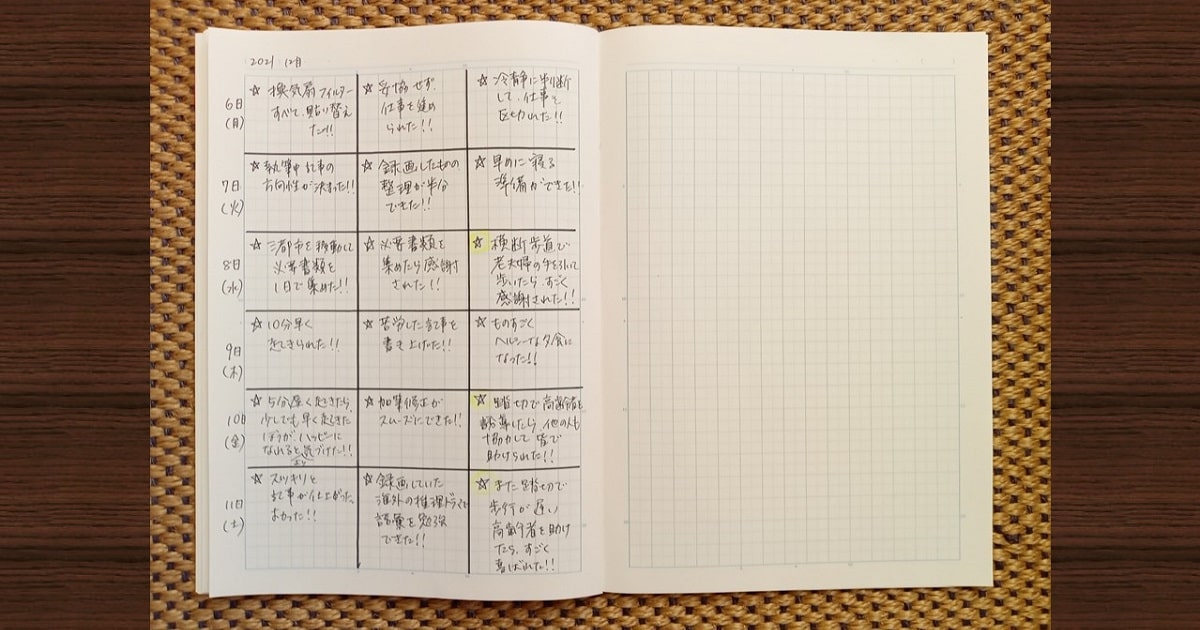 2021 12月
6日
(月)
☆ 換気扇フィルター
すべて、貼り替え
た!!
☆ 妥協せず、
仕事を進め
られた!!
☆ 冷静に判断
して、仕事を
区切れた!!
7日
(火)
☆ 執筆中記事の
方向性が決まった!!
☆ 録画したものの
整理が半分
できた!!
☆ 早めに寝る
準備ができた!!
8日
(水)
☆ 三都市を移動して
必要書類を
1日で集めた!!
☆ 必要書類を
集めたら感謝
された!!
☆ 横断歩道で
老夫婦の手を引いて
歩いたら、すごく
感謝された!!
9日
(木)
☆ 10分早く
起きられた!!
☆ 苦労した記事を
書き上げた!!
☆ ものすごく
ヘルシーな夕食に
なった!!
10日
(金)
☆ 5分早く起きたら、
少しでも早く起きた
ほうが、ハッピーに
なれると気づけた!!
☆ 加筆修正が
スムーズにできた!!
☆ 踏切で高齢者を
誘導したら、他の人も
協力して皆で
助けられた!!
11日
(土)
☆ スッキリと
記事が仕上がった。
よかった!!
☆ 録画していた
海外の推理ドラマで
語彙を勉強
できた!!
☆ また踏切で
歩行が遅い
高齢者を助け
たら、すごく
喜ばれた!!